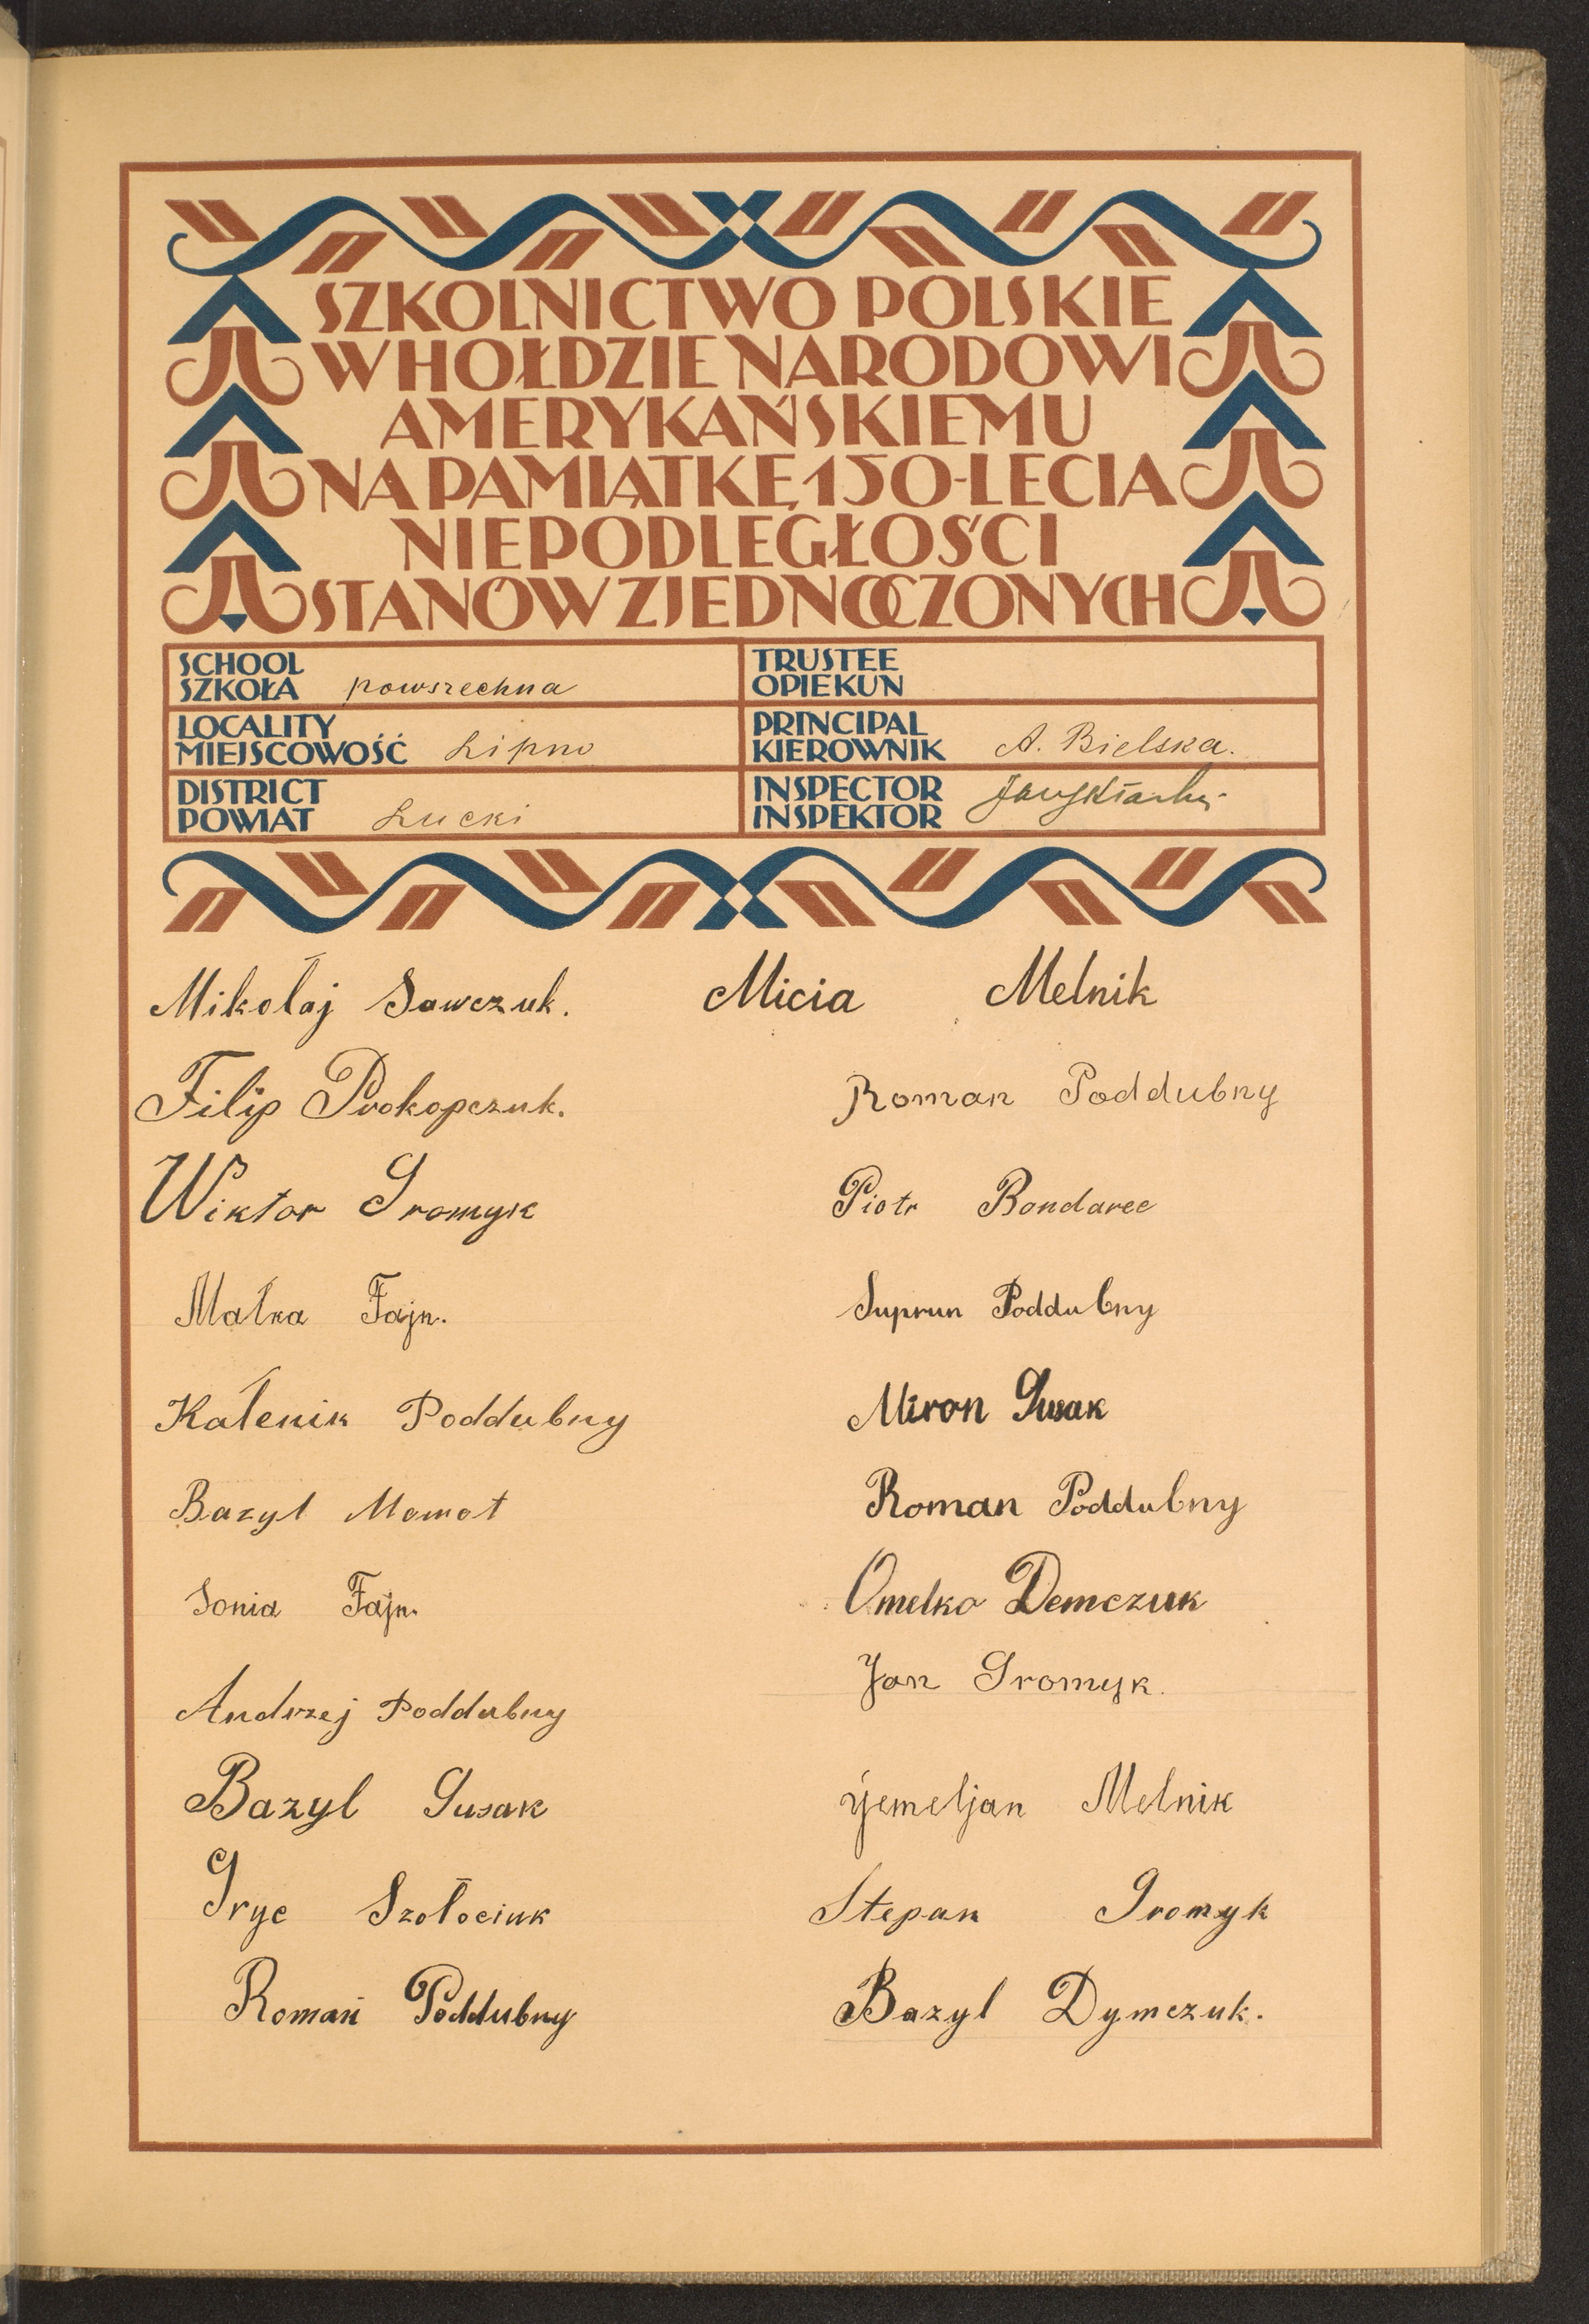 SZKOLNICTWO POLSKIE
W HOŁDZIE NARODOWI
AMERYKAŃSKIEMU
NA PAMIĄTKĘ 150-LECIA
NIEPODLEGŁOŚCI
STANÓW ZJEDNOCZONYCH
SCHOOL
SZKOŁA powszechna
LOCALITY
MIEJSCOWOŚĆ Lipno
DISTRICT
POWIAT Łucki
TRUSTEE
OPIEKUN
PRINCIPAL
KIEROWNIK A. Bielska.
INSPECTOR
INSPEKTOR
Mikołaj Sawczuk.
Filip Prokopczuk.
Wiktor Gromyk
Małka Fajn.
Kałenik Poddubny
Bazyl Momot
Sonia Fajn.
Andrzej Poddubny
Bazyl Gusak
Gryc Szołociuk
Roman Poddubny
Micia Melnik
Roman Poddubny
Piotr Bondarec
Suprun Poddubny
Miron Gusak
Roman Poddubny
Omelko Demczuk
Jan Gromyk.
Yemeljan Melnik
Stepan Gromyk
Bazyl Dymczuk.